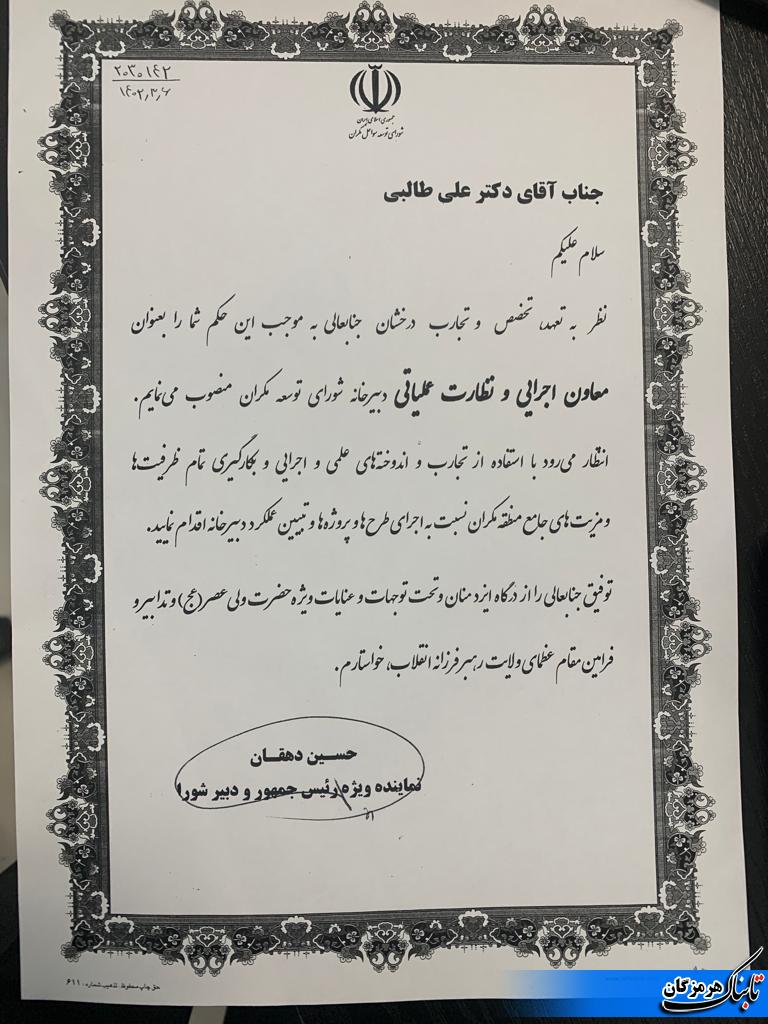 ۲۰۳۰۱۴۲
۱۴۰۲,۳,۶
جمهوری اسلامی ایران
شورای توسعه سواحل مکران
جناب آقای دکتر علی طالبی
سلام علیکم
نظر به تعهد، تخصص و تجارب درخشان جنابعالی به موجب این حکم شما را بعنوان
معاون اجرایی و نظارت عملیاتی دبیرخانه شورای توسعه مکران منصوب می‌نمایم.
انتظار می‌رود با استفاده از تجارب و اندوخته‌های علمی و اجرایی و بکارگیری تمام ظرفیت‌ها
و مزیت‌های جامع منطقه مکران نسبت به اجرای طرح‌ها و پروژه‌ها و تبیین عملکرد دبیرخانه اقدام نمایید.
توفیق جنابعالی را از درگاه ایزد منان و تحت توجهات و عنایات ویژه حضرت ولی عصر(عج) و تدابیر و
فرامین مقام عظمای ولایت رهبر فرزانه انقلاب، خواستارم.
حسین دهقان
نماینده ویژه رئیس جمهور و دبیر شورا
حق چاپ محفوظ. تذهیب شماره: ۶۱۱
تابناک هرمزگان